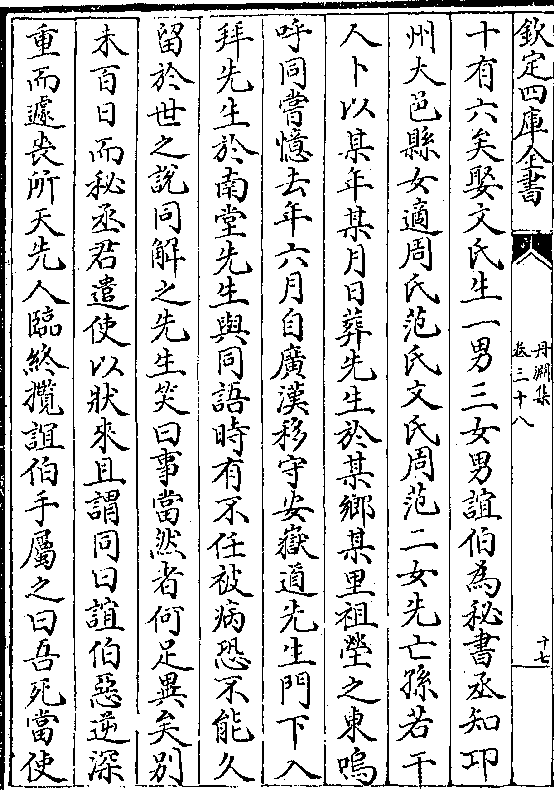 欽定四庫全書
丹淵集
卷三十八
十七
十有六矣娶文氏生一男三女男誼伯為秘書丞知邛
州大邑縣女適周氏范氏文氏周范二女先亡孫若干
人卜以某年某月日葬先生於某鄉某里祖塋之東嗚
呼同嘗憶去年六月自廣漢移守安嶽道先生門下入
拜先生於南堂先生與同語時有不任被病恐不能久
留於世之說同解之先生笑曰事當然者何足異矣别
未百日而秘丞君遣使以狀來且謂同曰誼伯惡逆深
重而遽喪所天先人臨終攬誼伯手屬之曰吾死當使